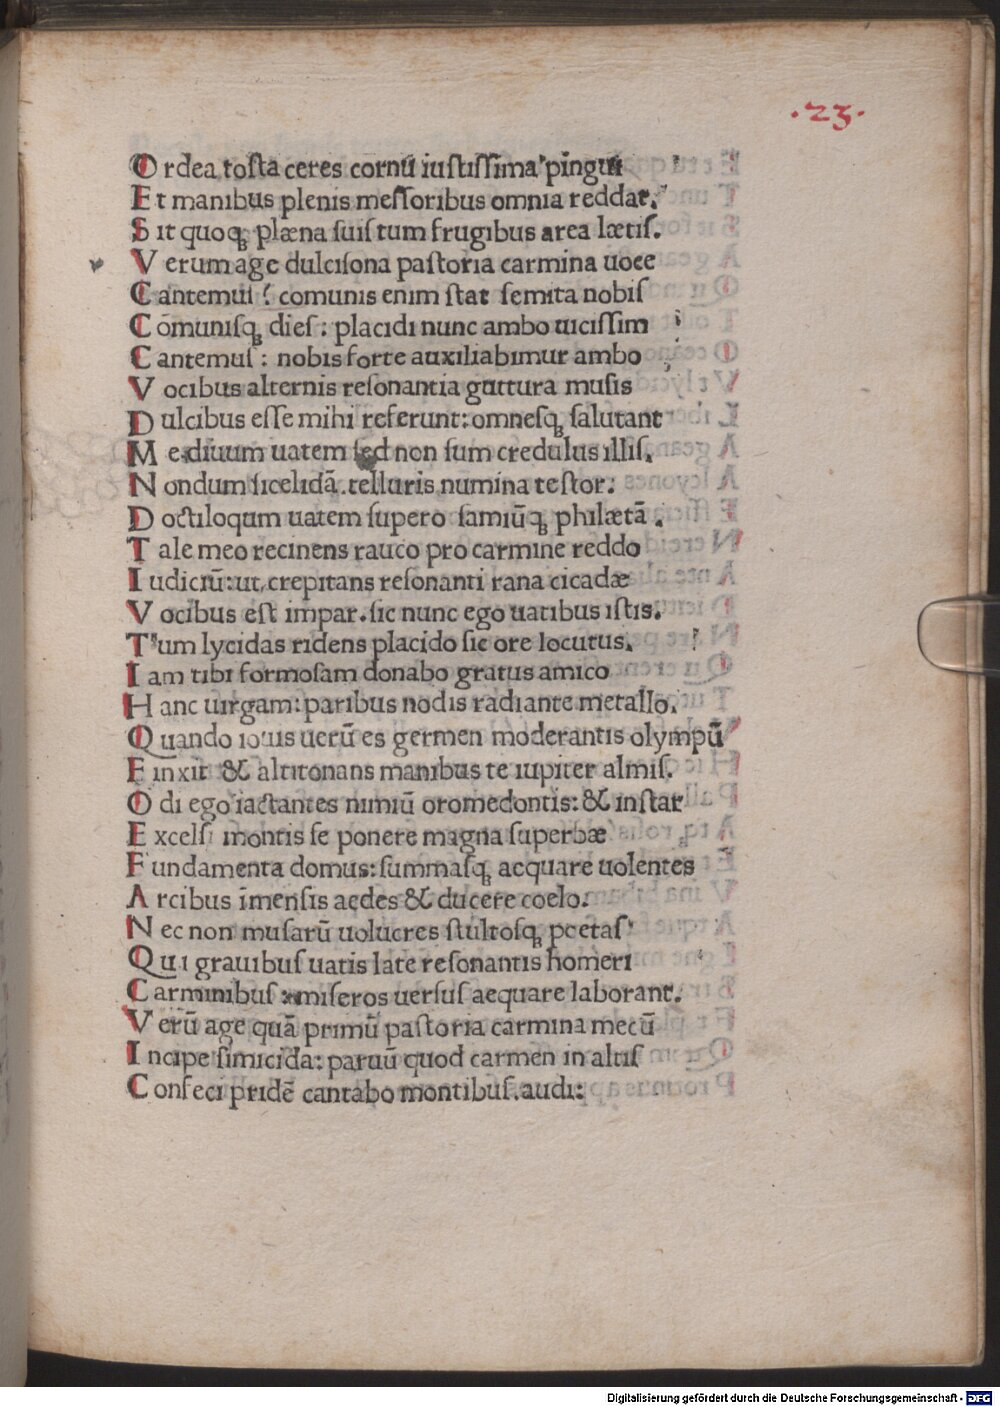 .23.
O rdea tosta ceres cornū iustissima pingui
E t manibus plenis messoribus omnia reddat.
S it quoqꝫ plæna suis tum frugibus area lætis.
V erum age dulcisona pastoria carmina uoce
C antemus ? comunis enim stat semita nobis
C ōmunisqꝫ dies: placidi nunc ambo uicissim
C antemus: nobis forte auxiliabimur ambo
V ocibus alternis resonantia guttura musis
D ulcibus esse mihi referunt: omnesqꝫ salutant
M e diuum uatem sed non sum credulus illis.
N ondum sicelidā. telluris numina testor:
D octiloqum uatem supero samiūqꝫ philætā.
T ale meo recinens rauco pro carmine reddo
I udiciū: ut, crepitans resonanti rana cicadæ
V ocibus est impar. sic nunc ego uatibus istis.
T um lycidas ridens placido sic ore locutus.
I am tibi formosam donabo gratus amico
H anc uirgam: paribus nodis radiante metallo.
Q uando iouis uerū es germen moderantis olympū
F inxit & altitonans manibus te iupiter almis.
O di ego iactantes nimiū oromedontis: & instar
E xcelsi montis se ponere magna superbæ
F undamenta domus: summasqꝫ aequare uolentes
A rcibus īmensis aedes & ducere coelo.
N ec non musarū uolucres stultosqꝫ poetas
Q ui grauibus uatis late resonantis homeri
C arminibus miseros uersus aequare laborant.
V erū age quā primū pastoria carmina mecū
I ncipe simicida: paruū quod carmen in altis
C onfeci pridē cantabo montibus. audi:
Digitalisierung gefördert durch die Deutsche Forschungsgemeinschaft - DFG